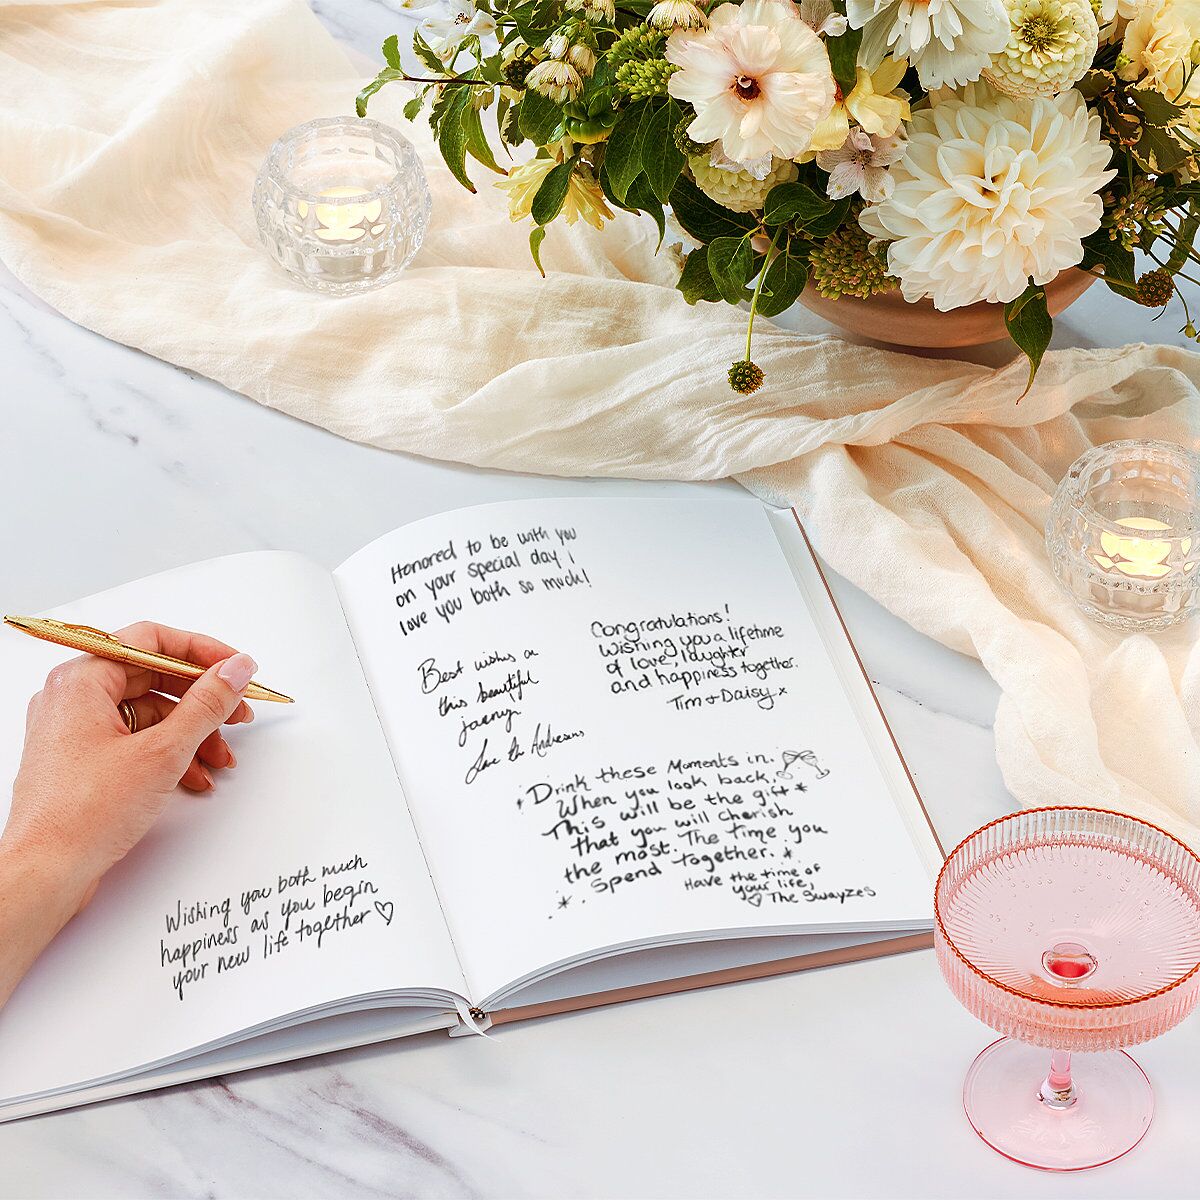 Wishing you both much
happiness as you begin
your new life together
Honored to be with you
on your special day I
love you both so much!
Congratulations!
Wishing you a lifetime
of love, laughter
and happiness together.
Tim + Daisy x
Best wishes on
this beautiful
journey
Love the Andersens
Drink these Moments in.
When you look back,
This will be the gift
that you will cherish
the most. The time you
spend together.
Have the time of
your life,
The Swayzes